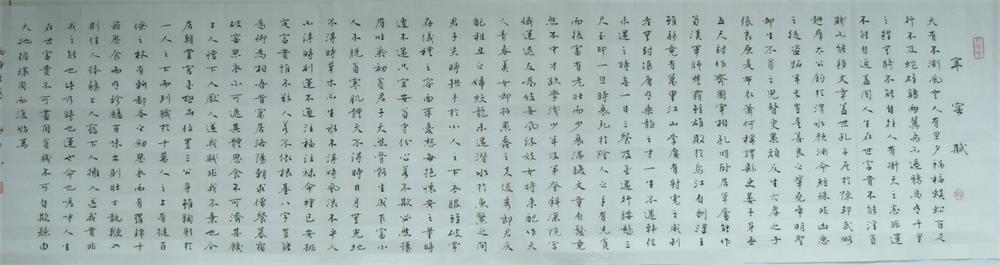 寒窑賦
天有不測風雲人有旦夕禍福蜈蚣百足
行不及蛇雄雞兩翼飛不過鴉馬有千里
之程無騎不能自往人有衝天之志非運
不能自通蓋聞人生在世富貴不能淫貧
賤不能移文章蓋世孔子厄於陳邦武略
超群太公釣於渭水顏淵命短殊非凶惡
之徒盜跖年長豈是善良之輩堯帝明聖
卻生不肖之兒瞽叟愚頑反生大孝之子
張良原是布衣蕭何稱謂縣吏晏子身無
五尺封作齊國宰相孔明臥居草廬能作
蜀漢軍師楚霸雖雄敗於烏江自刎漢王
雖弱竟有萬里江山李廣有射虎之威到
老無封馮唐有乘龍之才一生不遇韓信
未遇之時無一日三餐及至遇行腰懸三
尺玉印一旦時衰死於陰人之手有先貧
而後富有老壯而少衰滿腹文章白髮竟
然不中才疏學淺少年及第登科深院宮
娥運退反為妓妾風流妓女時來配作夫
人青春美女卻招愚蠢之夫俊秀郎君反
配粗丑之婦蛟龍未遇潛水於魚鱉之間
君子失時拱手於小人之下衣服雖破常
存儀禮之容面帶憂愁每抱懷安之量時
遭不遇只宜安貧守份心若不欺必然揚
眉吐氣初貧君子天然骨骼生成乍富小
人不脫貧寒肌體天不得時日月無光地
不得時草木不生水不得時風浪不平人
不得時利運不通注福注祿命裡已安排
定富貴誰不欲人若不依根基八字豈能
為卿為相吾昔寓居洛陽朝求僧餐暮宿
破窖思衣不可遮其體思食不可濟其飢
上人憎下人厭人道我賤非我不棄也今
居朝堂官至極品位置三公身雖鞠躬於
一人之下而列職於千萬人之上有撻百
僚之杖有斬鄙吝之劍思衣而有羅錦千
箱思食而有珍饈百味出則壯士執鞭入
則佳人捧觴上人寵下人擁人道我貴非
我之能也此乃時也運也命也嗟呼人生
在世富貴不可盡用貧賤不可自欺聽由
天地循環周而復始焉